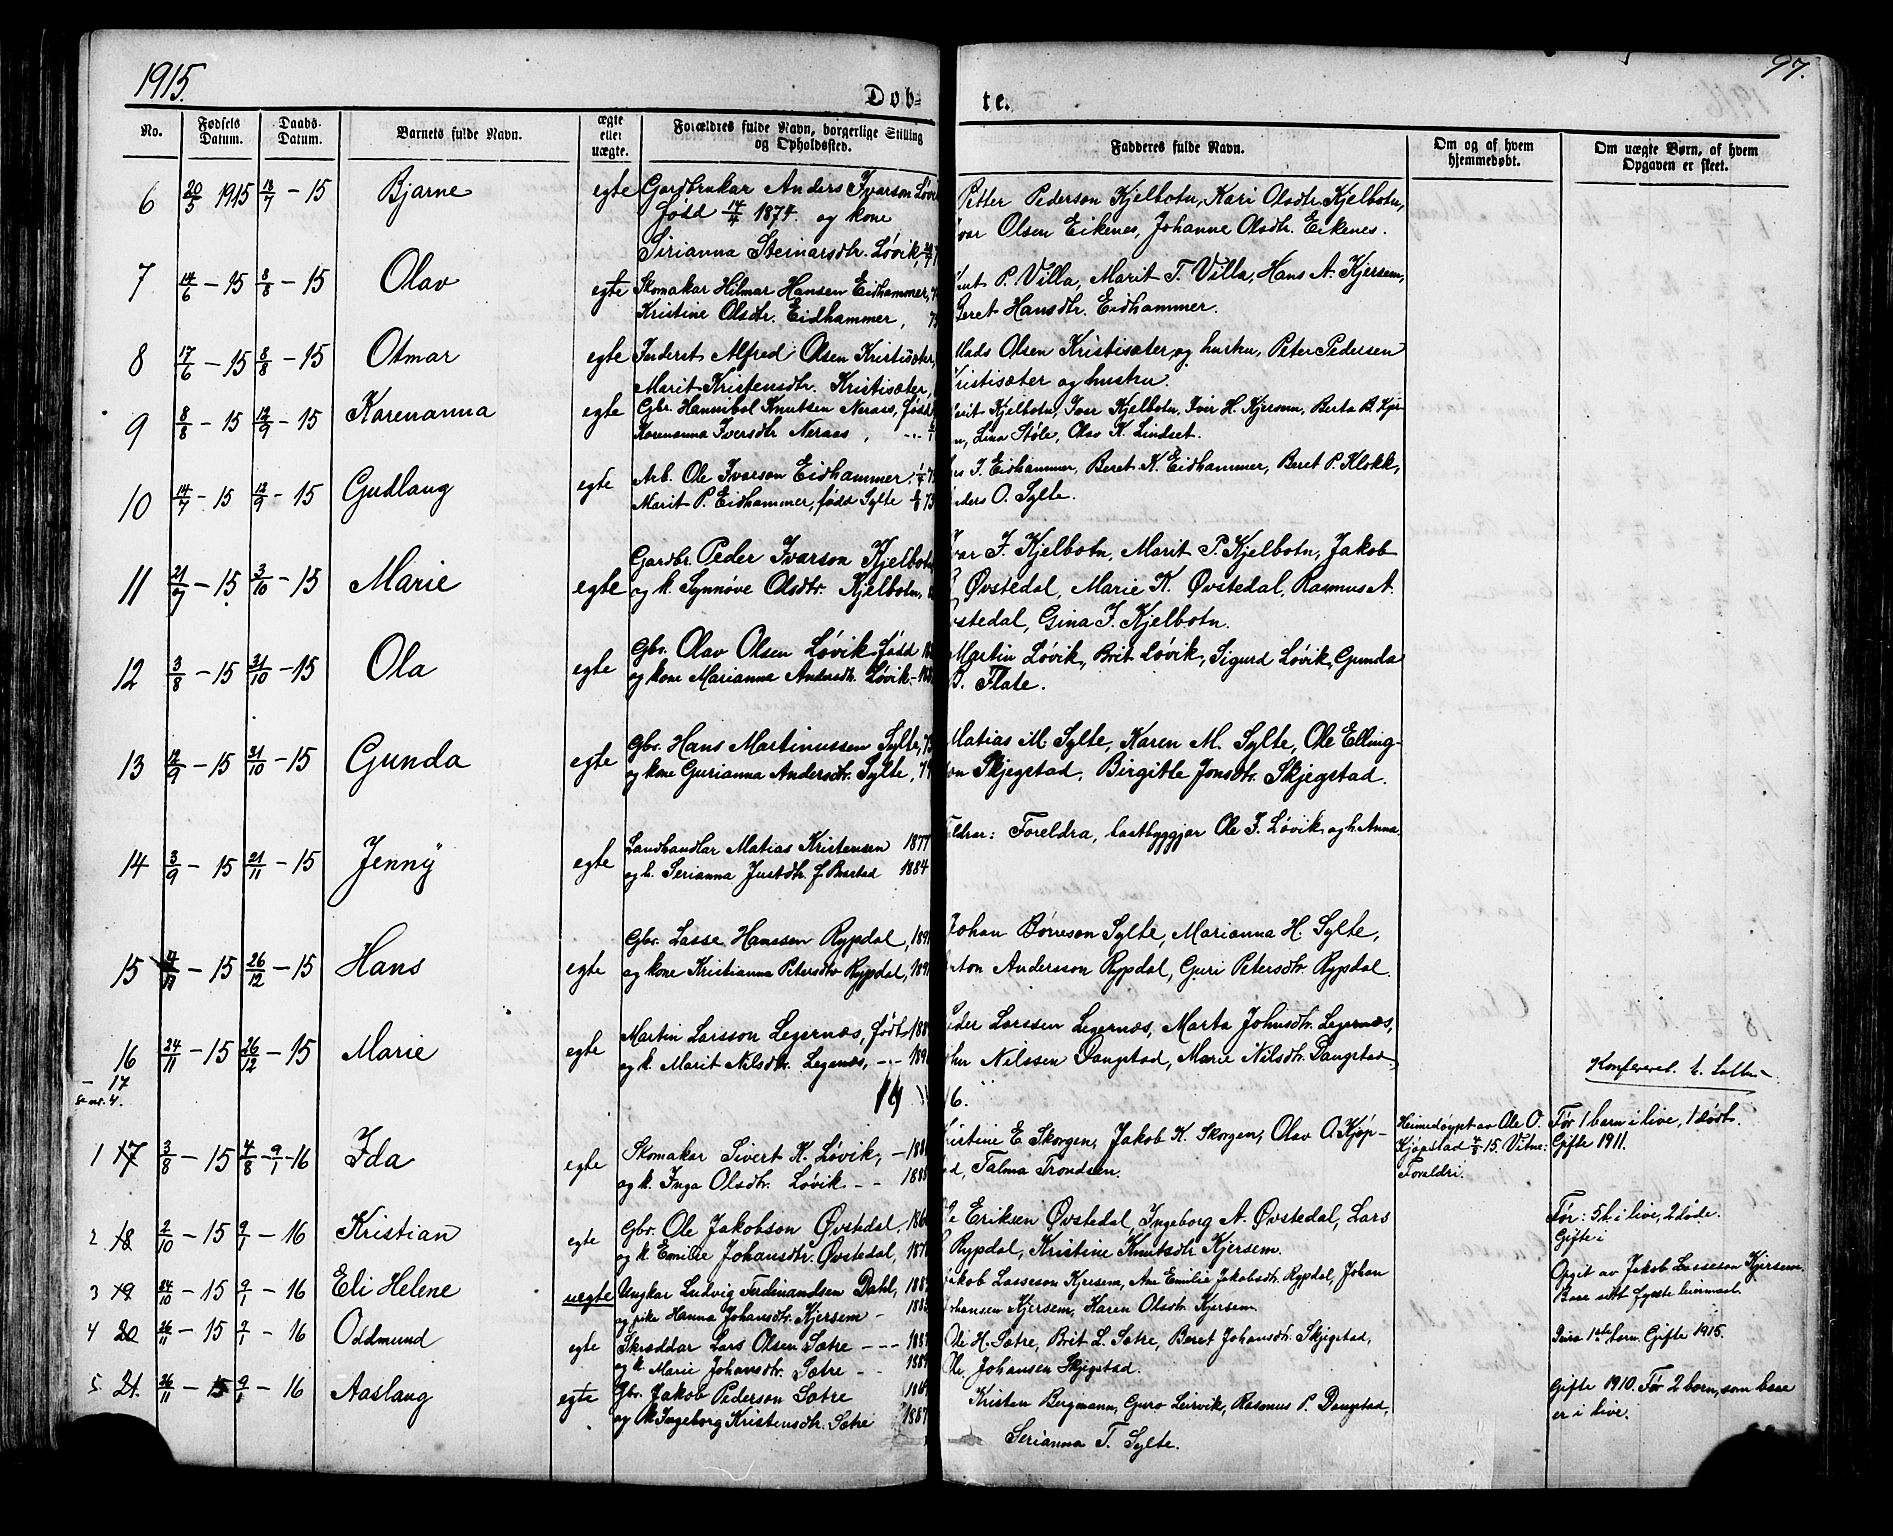 1915.
97.
Døb- te.
No.
Fødsels Datum.
Daabs- Datum.
Barnets fulde Navn.
ægte eller uægte.
Forældres fulde Navn, borgerlige Stilling og Opholdssted.
Fadderes fulde Navn.
Om og af hvem hjemmedøbt.
Om uægte Børn, af hvem Opgaven er skeet.
6 20/5 1915 18/7 - 15 Bjarne egte Gardbrukar Anders Ivarson Løvik Petter Pederson Kjelbotn, Kari Olsdtr. Kjelbotn,
fødd 14/4 1874. og kone Ivar Olsen Eikenes, Johanne Olsdtr. Eikenes.
Sirianna Steinarsdtr. Løvik,
7 14/6 - 15 8/8 - 15 Olav egte Skomakar Hilmar Hansen Eidhammer, P. Villa, Marit T. Villa, Hans A. Kjersem,
Kristine Olsdtr. Eidhammer, Beret Hansdtr. Eidhammer.
8 17/6 - 15 8/8 - 15 Otmar egte Inderst Alfred Olsen Kristisæter, Mads Olsen Kristisæter og hustru, Peter Pedersen
Marit Kristensdtr. Kristisæter, Kristisæter og hustru.
9 8/8 - 15 12/9 - 15 Karenanna egte Gbr. Hannibal Knutsen Neraas, fødd Kjelbotn, Iver Kjelbotn, Iver H. Kjersem, Berta B. Kjer-
Karenanna Iversdtr Neraas, Lina Støle, Olav K. Lindset.
10 14/7 - 15 12/9 - 15 Gudlaug egte Arb. Ole Ivarson Eidhammer I. Eidhammer, Beret K. Eidhammer, Beret P. Klokk,
Marit P. Eidhammer, fødd Sylte Anders O. Sylte.
11 21/7 - 15 3/10 - 15 Marie egte Gardbr. Peder Ivarson Kjelbotn Ivar I. Kjelbotn, Marit P. Kjelbotn, Jakob
og k. Synnøve Olsdtr. Kjelbotn, Øvstedal, Marie K. Øvstedal, Rasmus A.
Øvstedal, Gina I. Kjelbotn.
12 3/8 - 15 31/10 - 15 Ola egte Gbr. Olav Olsen Løvik fødd Martin Løvik, Brit Løvik, Sigurd Løvik, Gunda
og kone Marianna Andersdtr. Løvik Flate.
13 12/9 - 15 31/10 - 15 Gunda egte Gbr. Hans Martinussen Sylte, Matias M. Sylte, Karen M. Sylte, Ole Elling-
og kone Gurianna Andersdtr. Sylte, son Skjegstad, Birgitte Jonsdtr. Skjegstad.
14 3/9 - 15 21/11 - 15 Jenny egte Landhandlar Matias Kristensen 1877 Foreldra, Ole I. Løvik og h. Anna.
og h. Serianna Justdtr. f. 1884
15 4/11 - 15 26/12 - 15 Hans egte Gbr. Lasse Hanssen Rypdal, Johan Børreson Sylte, Marianna H. Sylte,
og kone Kristianna Petersdtr Rypdal, Anton Andersson Rypdal, Guri Petersdtr. Rypdal.
16 24/11 - 15 26/12 - 15 Marie egte Martin Larsson Legernæs, født Peder Larssen Legernæs, Marta Johnsdtr. Legernæs,
og k. Marit Nilsdtr. Legernæs, Nilssen Daugstad, Marie Nilsdtr. Daugstad.
- 17
se nr. 4.
1916.
Konfereret.
1 17 3/8 - 15 4/8 - 9/1 - 16 Ida egte Skomakar Sivert K. Løvik, Kirstine E. Skorgen, Jakob K. Skorgen, Olav O. Kjøp- Heimedøypt av Ole O. Før 1 barn i live, 1 dødt.
og k. Inga Olsdtr. Løvik Talma Trondsen. Kjøpstad 4/8 15. Vitne: Gifte 1911.
Foreldri.
2 18 2/10 - 15 9/1 - 16 Kristian egte Gbr. Ole Jakobson Øvstedal, Ole Eriksen Øvstedal, Ingeborg A. Øvstedal, Lars Før: 5 b. i live, 2 døde.
og k. Emilie Johansdtr. Øvstedal, Rypdal, Kristine Knutsdtr Kjersem. Gifte i
3 19 24/10 - 15 9/1 - 16 Eli Helene uegte Ungkar Ludvig Ferdinandsen Dahl, Jakob Lasseson Kjersem, Ane Emilie Jakobsdtr. Rypdal, Johan Opgit av Jakob Lasseson Kjersem.
og pike Hanna Johansdtr. Kjersem Johansen Kjersem, Karen Olsdtr. Kjersem. Baae sitt fyrste leiermaal.
4 20 26/11 - 15 9/1 - 16 Oddmund egte Skræddar Lars Olsen Sætre Ole H. Sætre, Brit L. Sætre, Beret Johansdtr. Skjegstad, 1ste barn. Gifte 1915.
og k. Marie Johansdtr. Sætre Ole Johansen Skjegstad.
5 21 26/11 - 15 9/1 - 16 Aaslaug egte Gbr. Jakob Pederson Sætre Kristen Bergmann, Guro Leirvik, Rasmus P. Daugstad, Gifte 1910. Før 2 born, som baae
og k Ingeborg Kristensdtr. Sætre 1887 Serianna T. Sylte. er i live.